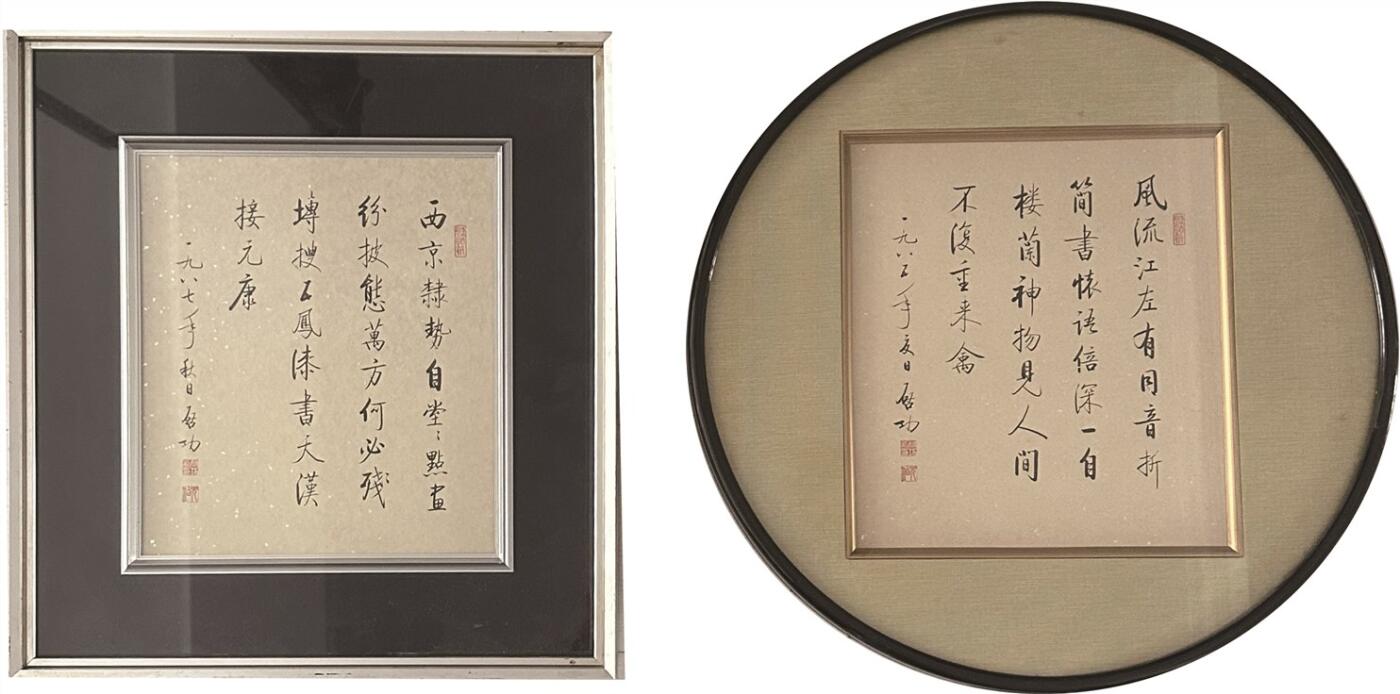 西京隸勢自堂〻點畫
紛披態萬方何必殘
塼搜五鳳漆書天漢
接元康
一九八七年秋日启功
風流江左有同音折
簡書懐語倍深一自
楼蘭神物見人間
不復重来禽
一九八五年夏日启功